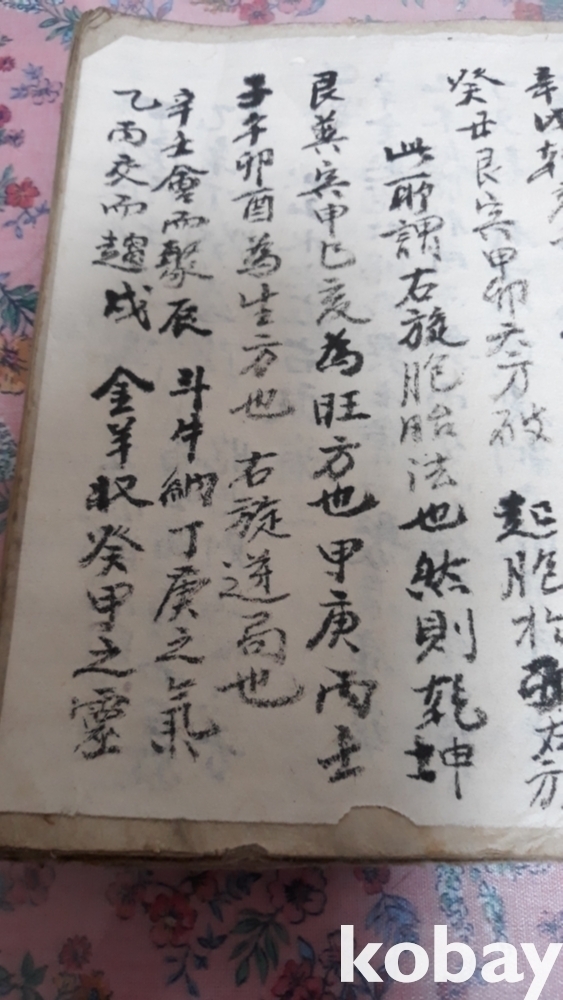 辛戌乾亥 起胞於 右方
癸丑艮寅甲卯六方破
此所謂右旋胞胎法也然則乾坤
艮巽寅申巳亥為旺方也甲庚丙壬
子午卯酉為生方也 右旋逆局也
辛壬會而聚辰 斗牛納丁庚之氣
乙丙交而趨戌 金羊收癸甲之靈
kobay